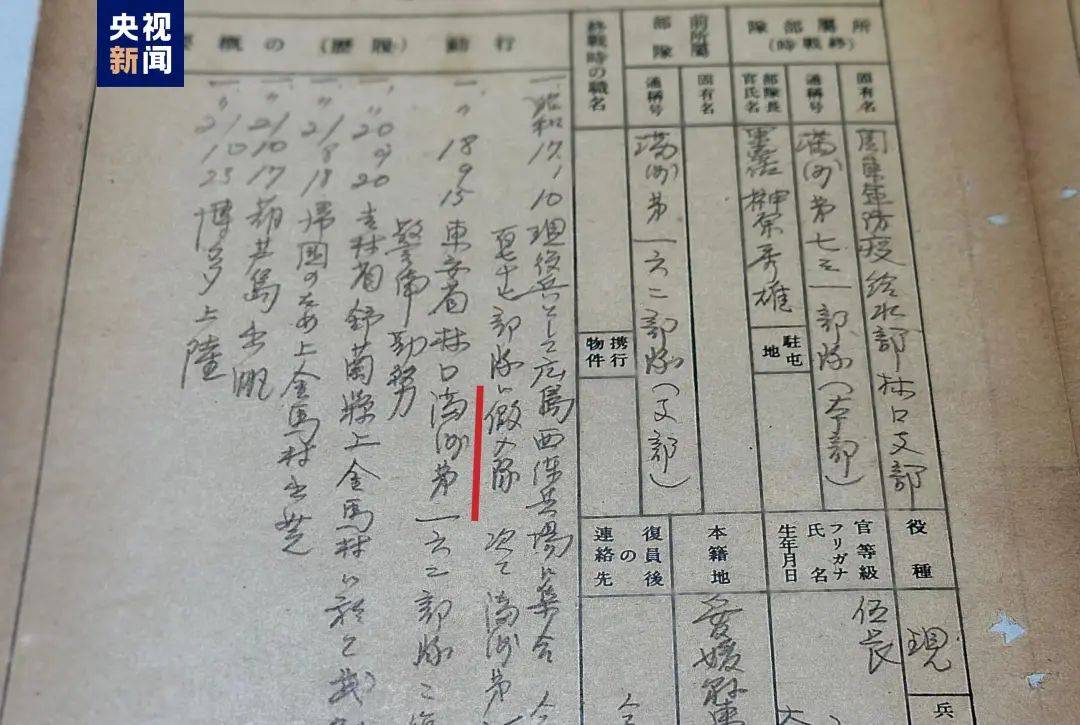 央视新闻
所屬部隊
(終戰時)
固有名
関東軍防疫給水部林口支部
通稱号
満洲第七三一部隊(本部)
部隊長
官氏名
榊原秀雄
駐屯地
前所屬部隊
固有名
通稱号
満洲第一六二部隊(支部)
終戰時の職名
携行物件
役種
現
兵
官等級
伍長
フリガナ
氏名
生年月日
本籍地
愛媛県東
復員後の連絡先
行動(履歴)の概
一、昭和17、9、10 現役兵として広島西練兵場に集合
部隊に仮入隊 次て満洲第
一、〃 18 9 15 東安省林口満洲第一六二部隊
警備勤務
一、〃 20 9 20 吉林省舒蘭県上金馬村に於て
一、〃 21 8 18 帰国のため上金馬村出発
一、〃 21 10 17 葫芦島出帆
一、〃 21 10 23 博多上陸